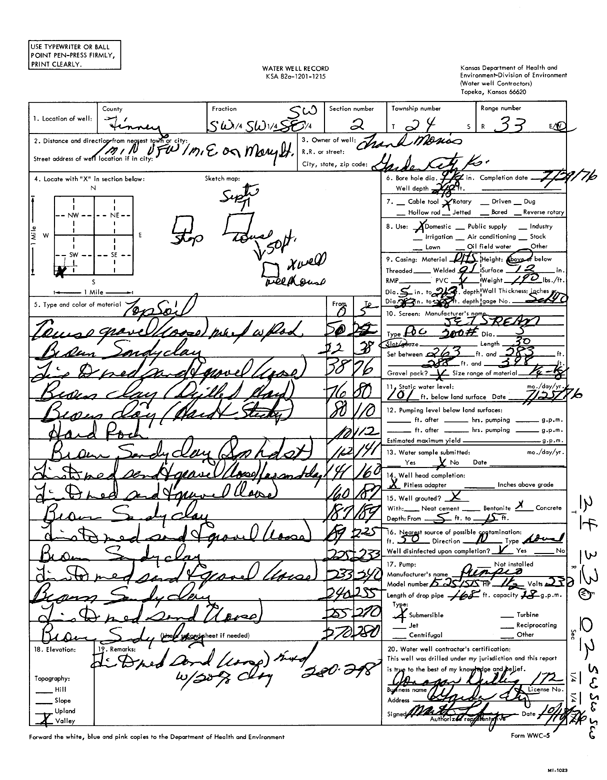 USE TYPEWRITER OR BALL
POINT PEN-PRESS FIRMLY,
PRINT CLEARLY.
WATER WELL RECORD
KSA 82a-1201-1215
Kansas Department of Health and
Environment-Division of Environment
(Water well Contractors)
Topeka, Kansas 66620
1. Location of well: County Finney
Fraction SW 1/4 SW 1/4 SE 1/4 SW
Section number 2
Township number T 24 S
Range number R 33 E/W
2. Distance and direction from nearest town or city: 1 m. N OF W 1 m. E on Mary St.
Street address of well location if in city:
3. Owner of well: Frank
R.R. or street:
City, state, zip code: Garden City Ks.
4. Locate with "X" in section below:
Sketch map:
N
NW NE
W E
SW SE
S
1 Mile
1 Mile
X
Sept
shop
house
50 ft.
X well
well house
5. Type and color of material
From To
Top Soil 0 5
Brown Sandy clay 22 38
Fine to med sand & gravel (loose) 38 76
Brown clay (Drilled Hard) 76 80
Brown clay (Hard & Sticky) 80 110
Hard Rock 110 112
Brown Sandy clay 112 141
Fine to med sand & gravel (loose) 141 160
Fine to med sand & gravel (loose) 160 187
Brown Sandy clay 187 189
Fine to med sand & gravel (loose) 189 225
Brown Sandy clay 225 233
Fine to med sand & gravel (loose) 233 240
Brown Sandy clay 240 255
Fine to med sand (loose) 255 270
Brown Sandy clay 270 280
(Use second sheet if needed)
6. Bore hole dia. in. Completion date 7/29/76
Well depth ft.
7. Cable tool X Rotary Driven Dug
Hollow rod Jetted Bored Reverse rotary
8. Use: X Domestic Public supply Industry
Irrigation Air conditioning Stock
Lawn Oil field water Other
9. Casing: Material Height: Above or below
Threaded Welded Surface 12 in.
RMP PVC Weight lbs./ft.
Dia. 5 in. to ft. depth Wall Thickness: inches or
Dia. in. to ft. depth gage No. Sch 40
10. Screen: Manufacturer's name
JET STREAM
Type PVC 200# Dia. 5
Slot/gauze Length 30
Set between 263 ft. and 283 ft.
288 ft. and ft.
Gravel pack? X Size range of material
11. Static water level: mo./day/yr.
101 ft. below land surface Date 7/25/76
12. Pumping level below land surfaces:
ft. after hrs. pumping g.p.m.
ft. after hrs. pumping g.p.m.
Estimated maximum yield g.p.m.
13. Water sample submitted: mo./day/yr.
Yes X No Date
14. Well head completion:
X Pitless adapter Inches above grade
15. Well grouted? X
With: Neat cement Bentonite X Concrete
Depth: From 5 ft. to 15 ft.
16. Nearest source of possible contamination:
ft. 50 Direction N Type
Well disinfected upon completion? X Yes No
17. Pump: Not installed
Manufacturer's name
Model number HP 1½ Volts 230
Length of drop pipe 168 ft. capacity 18 g.p.m.
Type:
X Submersible Turbine
Jet Reciprocating
Centrifugal Other
18. Elevation:
Topography:
Hill
Slope
Upland
X Valley
19. Remarks:
Fine to med sand (loose) mixed
w/20% clay 280-298
20. Water well contractor's certification:
This well was drilled under my jurisdiction and this report
is true to the best of my knowledge and belief.
Drilling 172
Business name License No.
Address Garden City
Signed Date
Authorized representative
24
33W
02
Sec
SW SW SE SW
1/4 1/4 1/4
Forward the white, blue and pink copies to the Department of Health and Environment
Form WWC-5